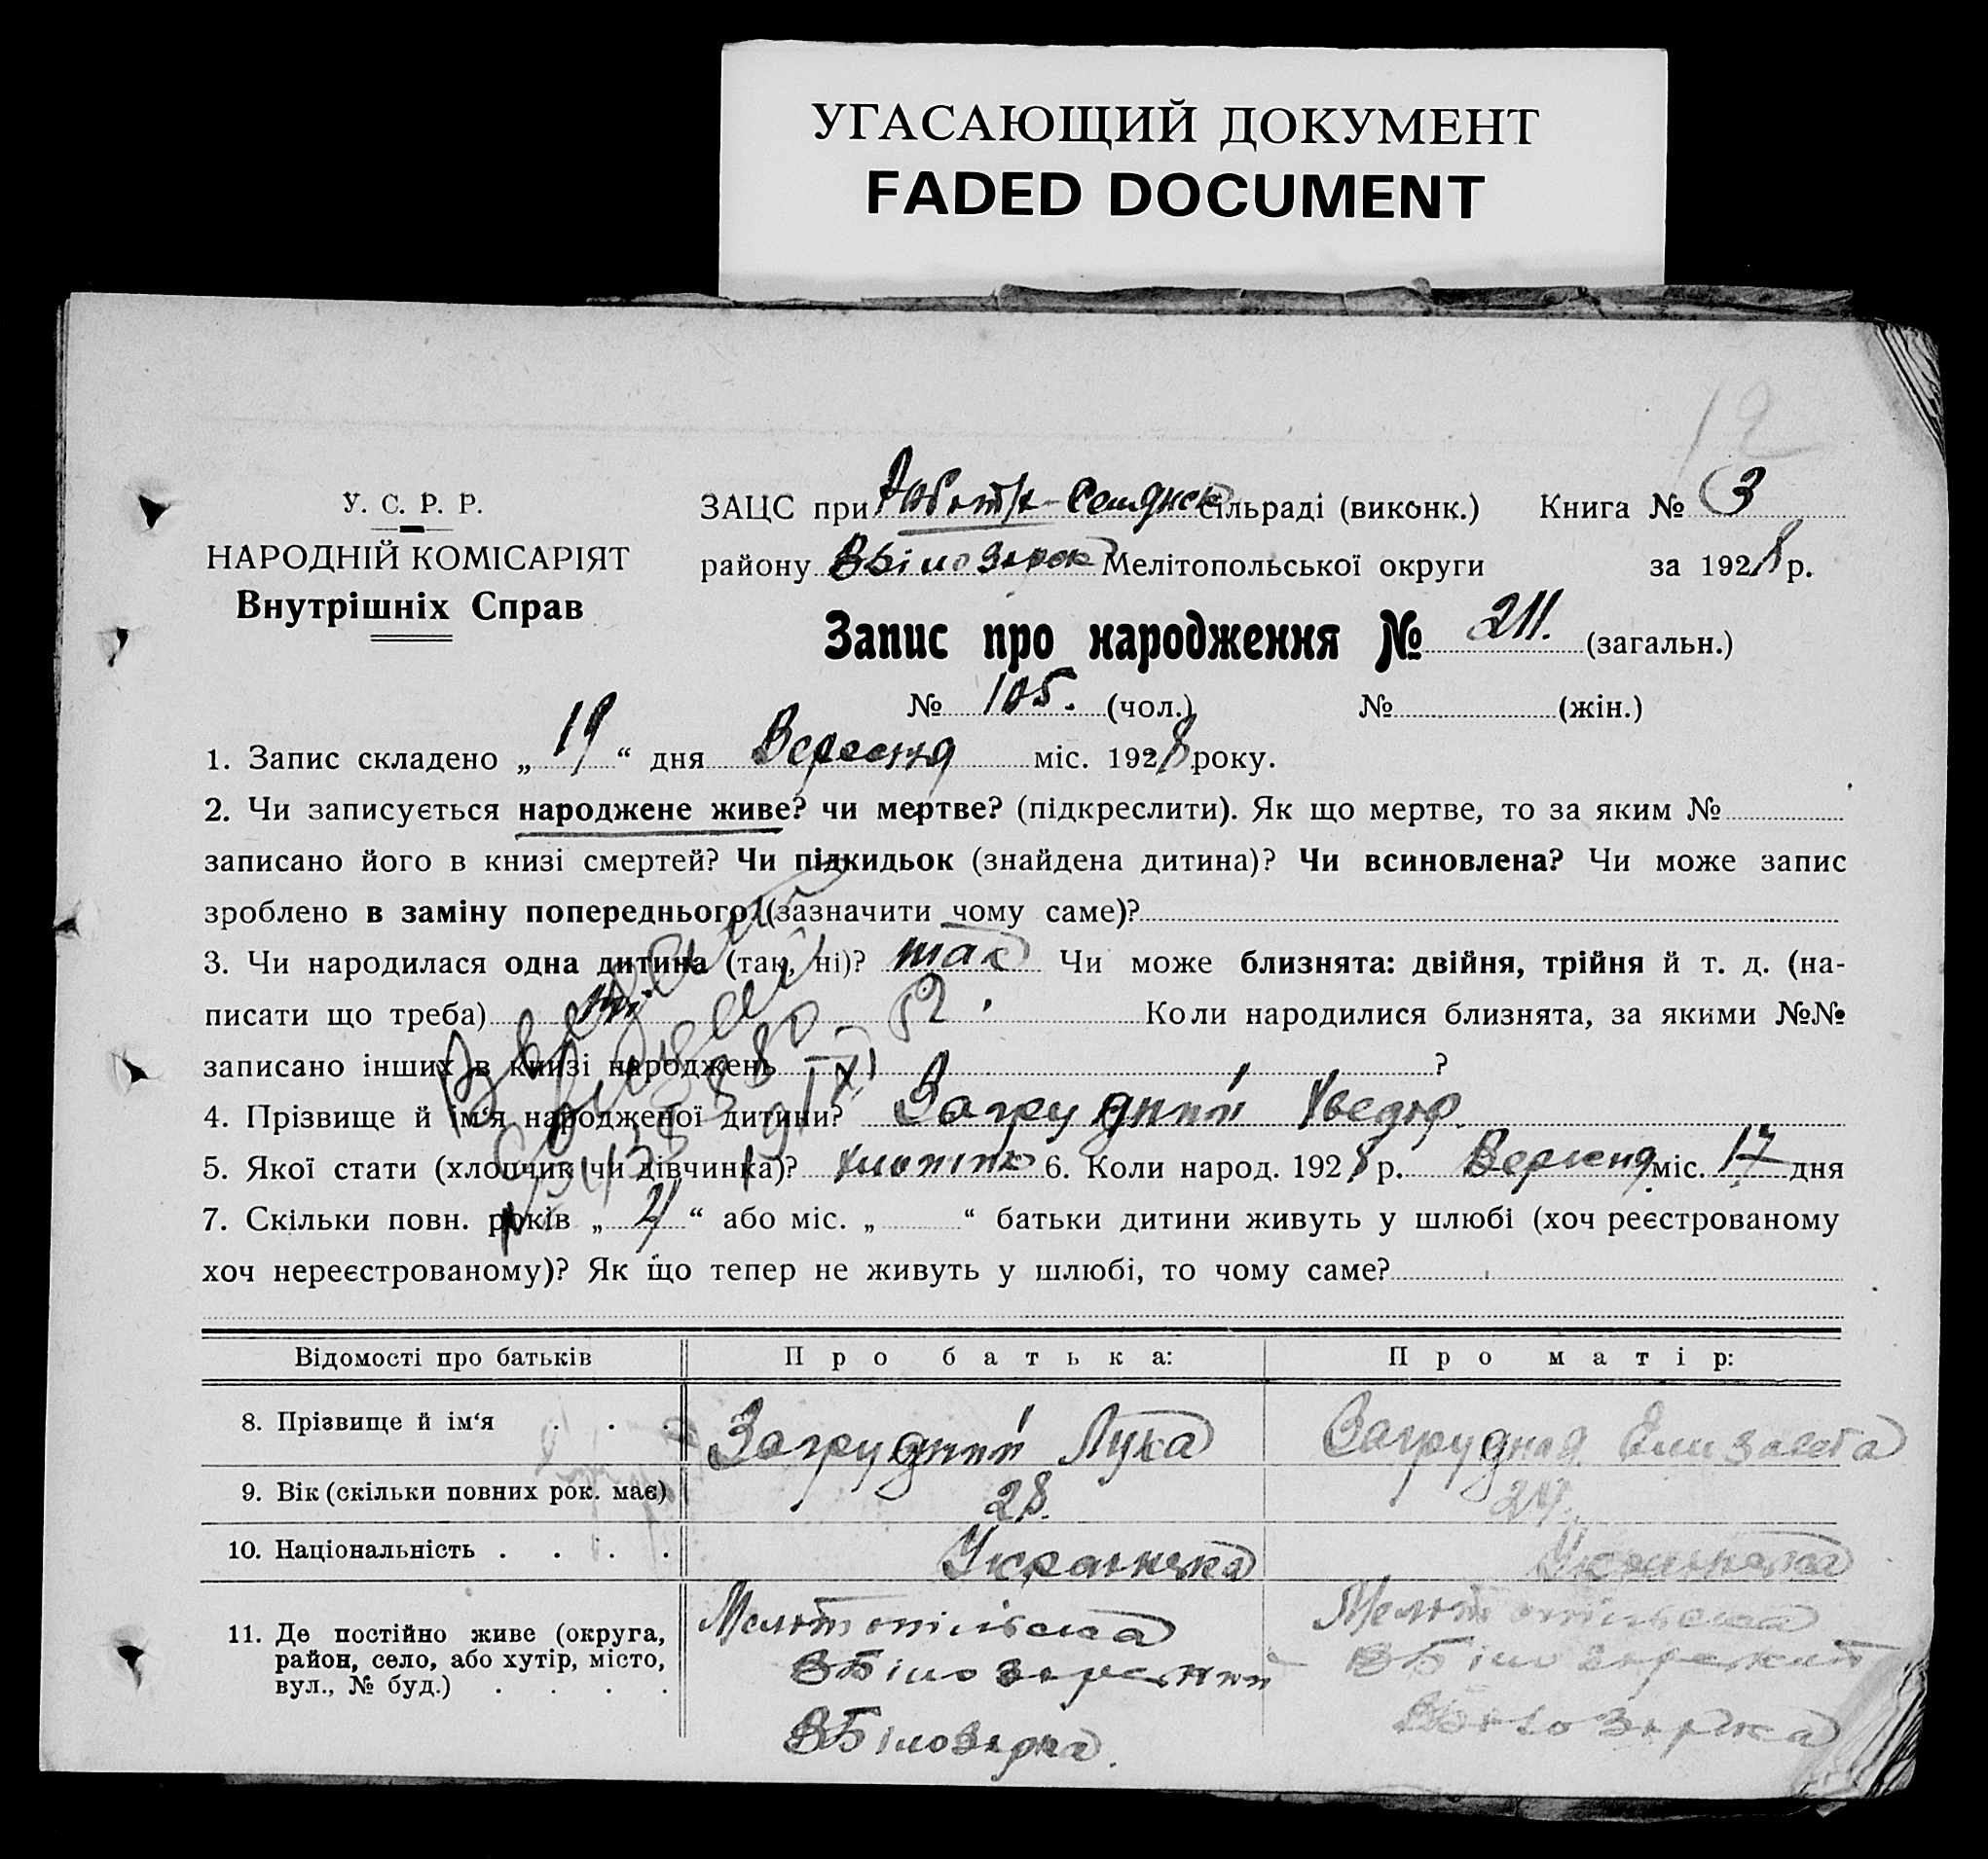 УГАСАЮЩИЙ ДОКУМЕНТ
FADED DOCUMENT
12
У. С. Р. Р.
НАРОДНІЙ КОМІСАРІЯТ
Внутрішніх Справ
ЗАЦС при сільраді (виконк.) Книга № 3
району ВБілозерск Мелітопольської округи за 1928 р.
Запис про народження № 211. (загальн.)
№ 105. (чол.) № (жін.)
1. Запис складено „ 19 “ дня Вересня міс. 1928 року.
2. Чи записується народжене живе? чи мертве? (підкреслити). Як що мертве, то за яким №
записано його в книзі смертей? Чи підкидьок (знайдена дитина)? Чи всиновлена? Чи може запис
зроблено в заміну попереднього? (зазначити чому саме)?
3. Чи народилася одна дитина (так, ні)? так Чи може близнята: двійня, трійня й т. д. (на-
писати що треба) ні Коли народилися близнята, за якими №№
записано інших в книзі народжень ?
4. Прізвище й ім‘я народженої дитини? Загрудний Хведір
5. Якої стати (хлопчик чи дівчинка)? 6. Коли народ. 1928 р. Вересня міс. 17 дня
7. Скільки повн. років „ 4 “ або міс. „ “ батьки дитини живуть у шлюбі (хоч реєстрованому
хоч нереєстрованому)? Як що тепер не живуть у шлюбі, то чому саме?
Відомості про батьків Про батька: Про матір:
8. Прізвище й ім‘я . . . Загрудний Лука Загрудная Елизавета
9. Вік (скільки повних рок. має) 28. 24.
10. Національність . . . . Українська Українська
11. Де постійно живе (округа, район, село, або хутір, місто, вул., № буд.) . . . . Мелітопільська Мелітопільська
ВБілозерский ВБілозерский
ВБілозерка. ВБілозерка